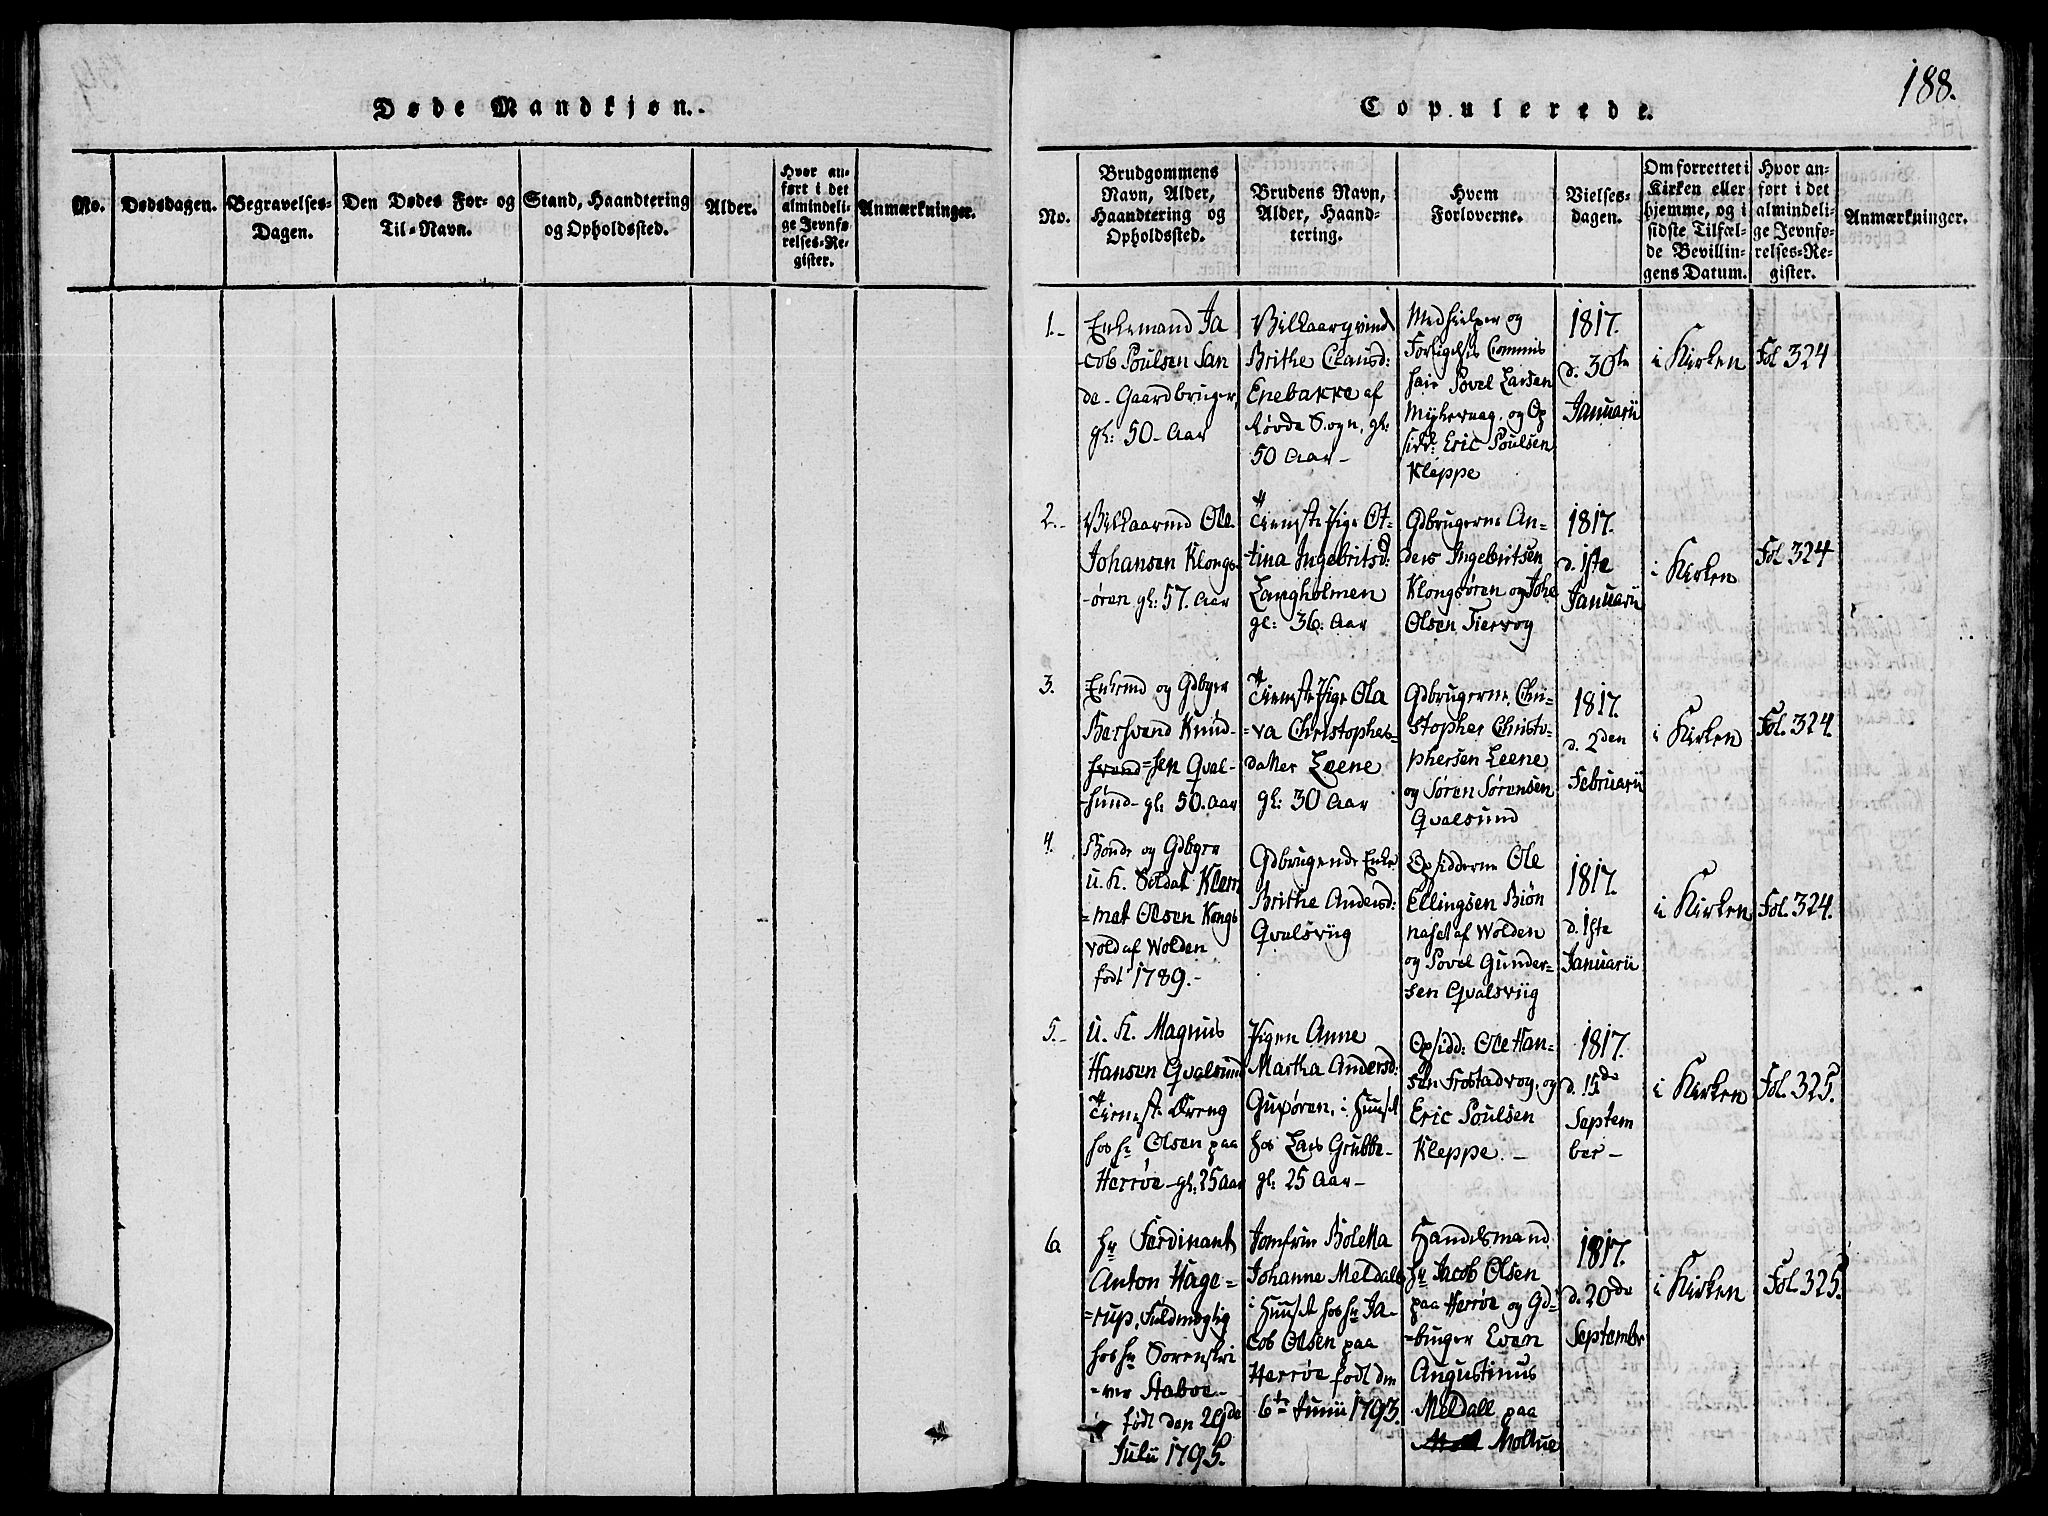 Døde Mandkjøn.
No.
Dødsdagen.
Begravelses-
Dagen.
Den Dødes For- og
Til-Navn.
Stand, Haandtering
og Opholdssted.
Alder.
Hvor an-
ført i det
almindeli-
ge Jevnfø-
relses-Re-
gister.
Anmærkninger.
188.
Copulerede.
No.
Brudgommens
Navn, Alder,
Haandtering og
Opholdssted.
Brudens Navn,
Alder, Haand-
tering.
Hvem
Forloverne.
Vielses-
dagen.
Om forrettet i
Kirken eller
hjemme, og i
sidste Tilfæl-
de Bevillin-
gens Datum.
Hvor an-
ført i det
almindeli-
ge Jevnfø-
relses-Re-
gister.
Anmærkninger.
1.
Enkemand Ja
cob Poulsen San
de - Gaardbruger,
gl: 50 - Aar
Vilkaarqvind
Brithe Clausd:
Enebakke af
Røvde Sogn, gl:
50 Aar -
Medhielper og
Forligelsis Commis
sair Povel Larsen
Myhrvaag, og Op
sidd: Eric Poulsen
Kleppe
1817.
d. 30te
Januarii
i Kirken
Fol 324
2.
Vilkaarmd Ole
Johansen Klongs
-øren gl: 57. Aar
Tienste Pige Ot-
tina Ingebritsd:
Langholmen
gl: 36: Aar
Gdbrugerne An-
ders Ingebritsen
Klongsøren og Johs
Olsen Tiervog
1817.
d. 1ste
Januarii
i Kirken
Fol 324
3.
Enkemd og Gdbger
Bersvend Knud-
svend=sen Qval-
-sund - gl: 50. Aar
Tienste Pige Ola
-va Christophers-
datter Leene
gl: 30 Aar
Gdbrugerne, Chri-
stopher Christo-
phersen Leene
og Søren Sørensen
Qvalsund
1817.
d. 2den
Februarii
i Kirken
Fol. 324.
4.
Bonde og Gdbger
U. K. Soldat Klem
=met Olsen Kongs
vold af Wolden
født 1789. -
Gdbrugende Enke
Brithe Andersd:
Qvalsviig
Opsidderne Ole
Ellingsen Biøn
næset af Wolden
og Povel Gunder-
sen Qvalsviig
1817.
d. 1ste
Januarii
i Kirken
Fol. 324.
5.
U. K. Magnus
Hansen Qvalsund
Tienst: Dreng
hos Hr Olsen paa
Herrøe - gl: 25 Aar
Pigen Anne
Martha Andersd:
Gurøren, i Huuset
hos Lars Grubbe -
gl: 25 Aar -
Opsidd: Ole Han-
sen Frostadvog, og
Eric Poulsen
Kleppe. -
1817.
d. 15de
Septem
ber -
i Kirken
Fol. 325.
6
Hr Ferdinant
Anton Hage=
=rup, Fuldmegtig
hos Hr Sorenskri
=ver Staboe -
født den 29de
Julii 1795.
Jomfrue Boletta
Johanne Meldall
i Huuset hos Hr Ja-
cob Olsen paa
Herrøe født den
6te Junii 1793.
Handelsmand
Hr Jacob Olsen
paa Herrøe og Gd-
-bruger Even
Angustinus
Meldall paa
Moltue
1817.
d. 20de
September
i Kirken
Fol. 325.